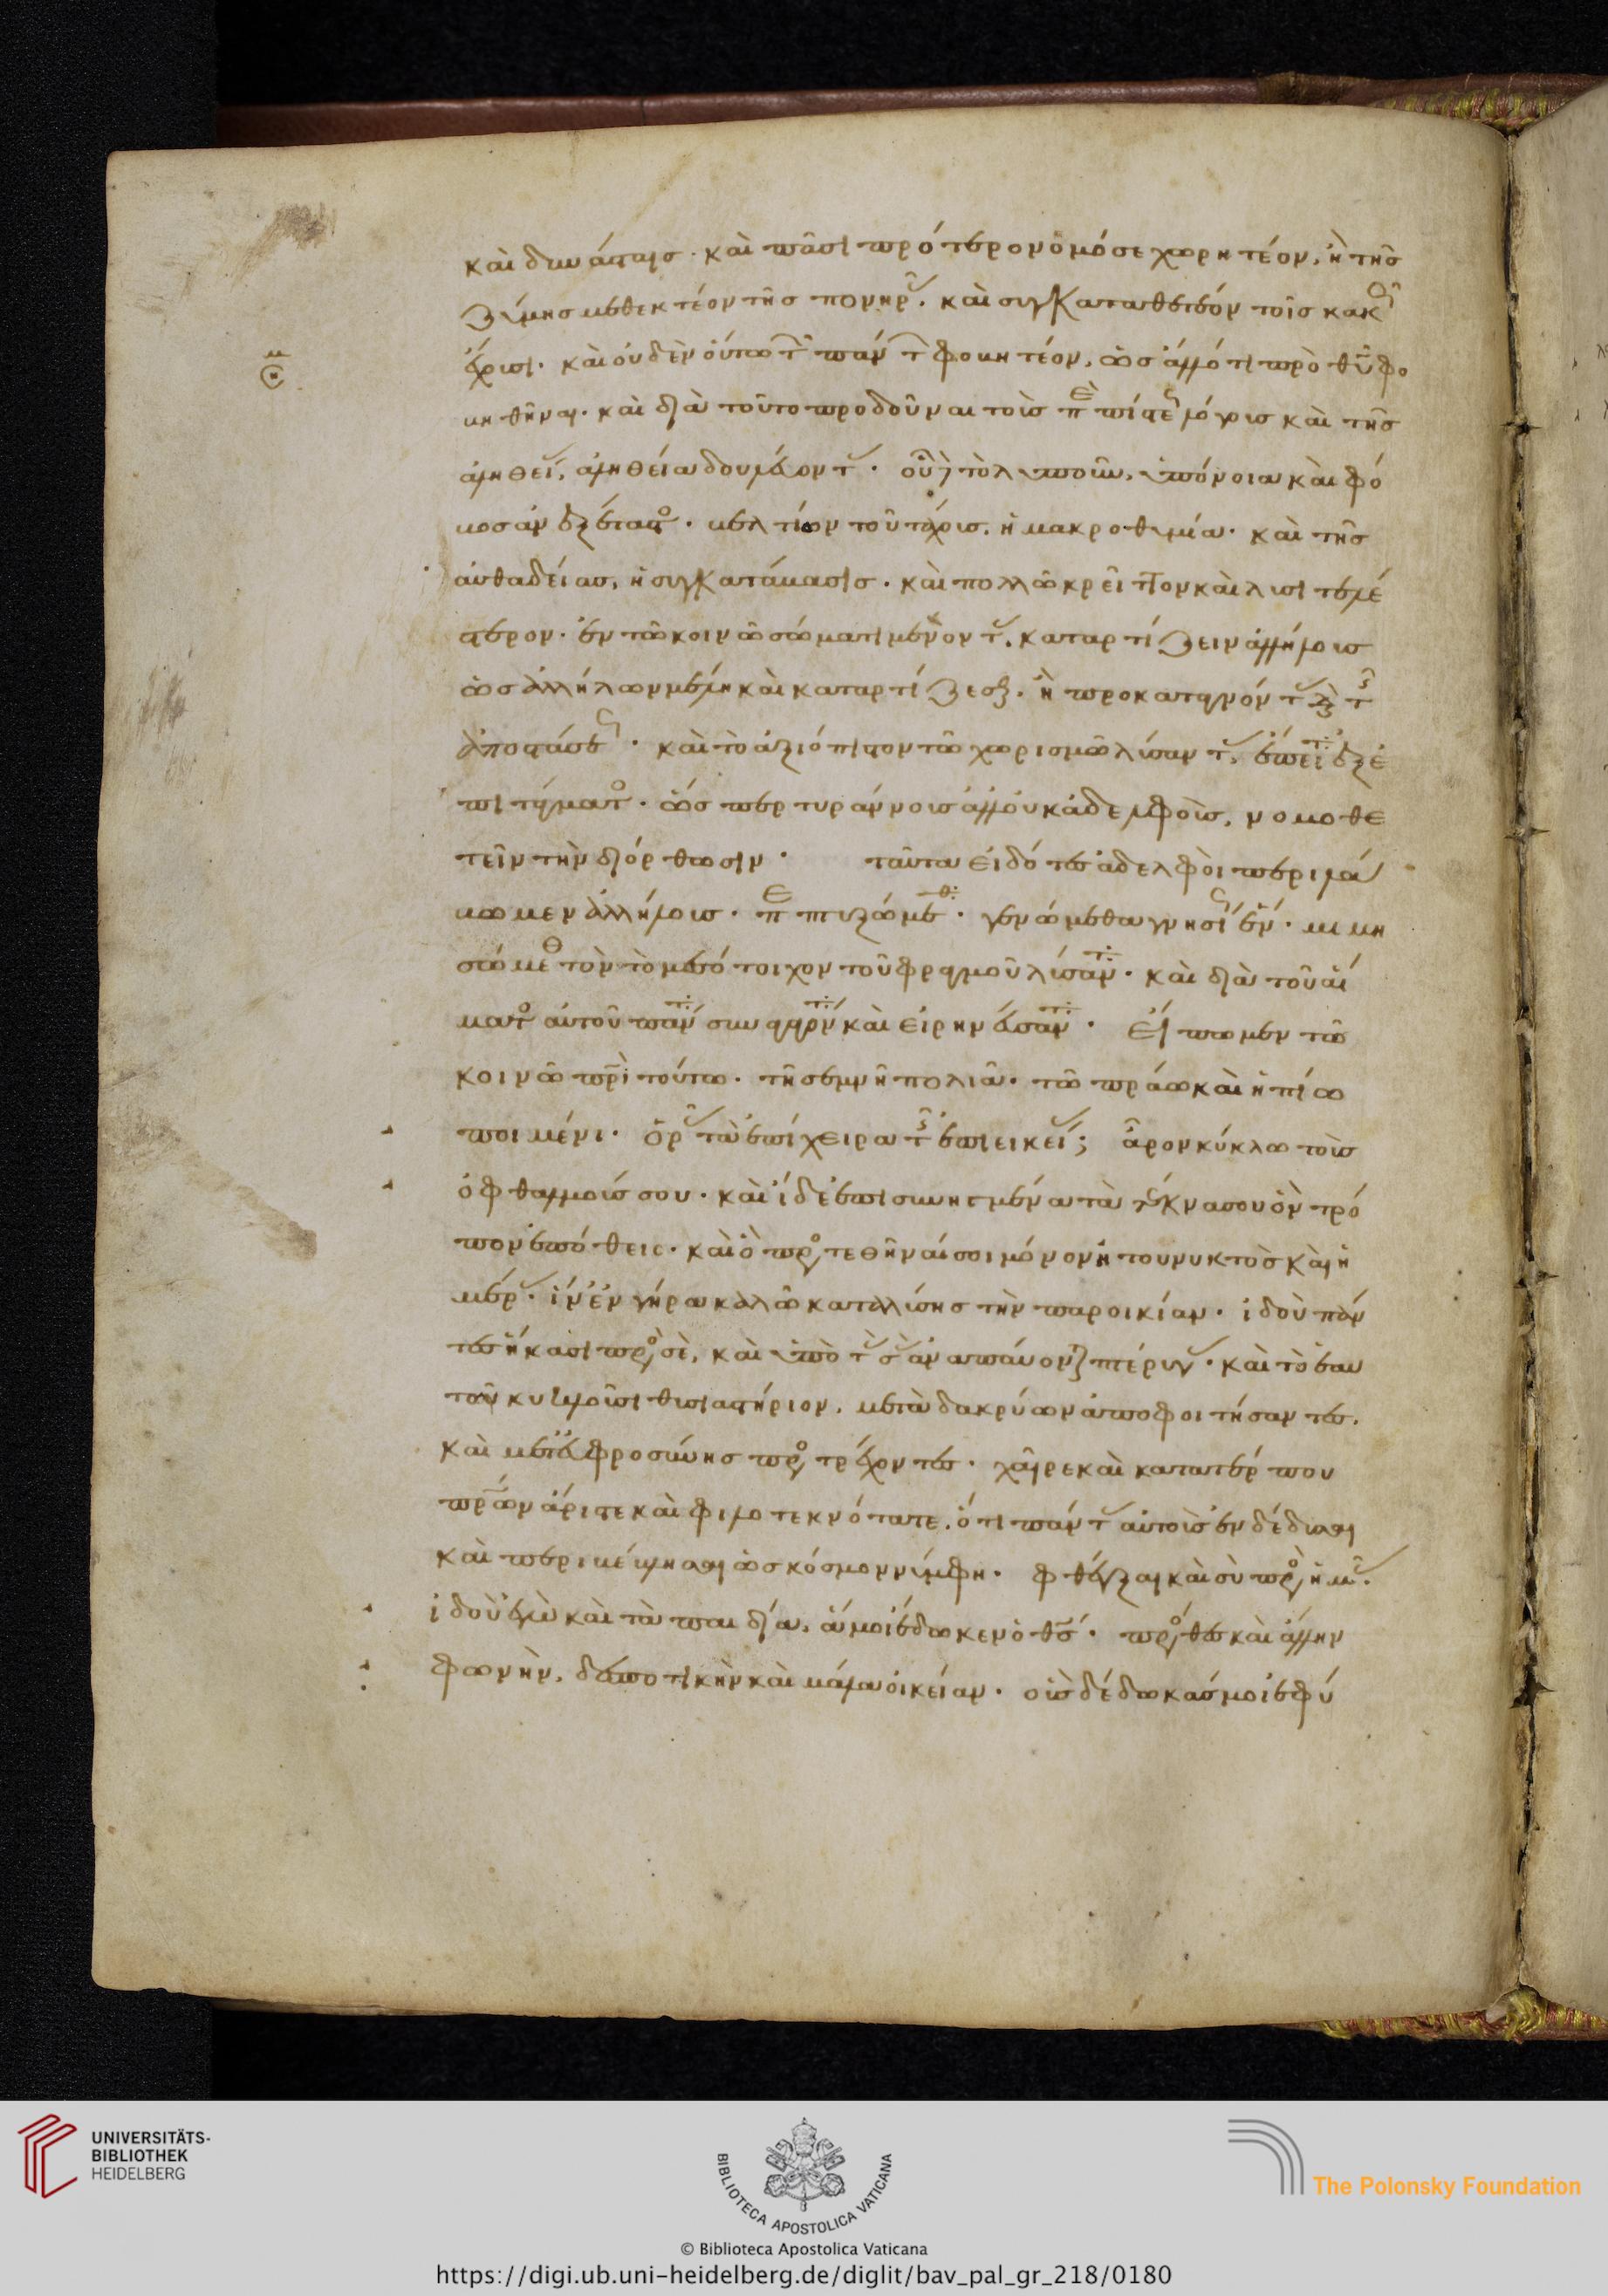 καὶ δυνάσταις. καὶ πᾶσι πρότερον ὁμόσε χωρητέον, ἢ τῆς
ζύμης μεθεκτέον τῆς πονηρᾶς. καὶ συγκαταθετέον τοῖς κακῶς
ἔχουσι. καὶ οὐδὲν οὕτω τῶν πάντων φοβητέον, ὡς ἄλλό τι πρὸ θῦ φο
βηθῆναι. καὶ διὰ τοῦτο προδοῦναι τοὺς περὶ πίστεως λόγους καὶ τῆς
ἀληθείας, ἀληθεία δουλεύοντας. οὗ δὲ τὸ λυποῦν, ὑπόνοια καὶ φό
βος ἀνεξέταστος. βελτίων τοῦ τάχους, ἡ μακροθυμία. καὶ τῆς
αὐθαδείας, ἡ συγκατάβασις. καὶ πολλῶ κρεῖττον καὶ λυσιτελέ
στερον. ἐν τῶ κοινῶ σώματι μένοντας, καταρτίζειν ἀλλήλους
ὡς ἀλλήλων μέλη καὶ καταρτίζεσθαι. ἢ προκαταγνόντας διὰ τῆς
ἀποστάσεως. καὶ τὸ ἀξιόπιστον τῶ χωρισμῶ λύσαντας, ἔπειτα ἐξ ἐ
πιτάγματος. ὥσπερ τυράννους ἀλλ' οὐκ ἀδελφοὺς, νομοθε
τεῖν τὴν διόρθωσιν. ταῦτα εἰδότες ἀδελφοὶ περιλά
βωμεν ἀλλήλους. περιπτυξώμεθα. γενώμεθα γνησίως ἕν. μιμη
σώμεθα τὸν τὸ μεσότοιχον τοῦ φραγμοῦ λύσαντα. καὶ διὰ τοῦ αἵ
ματος αὐτοῦ πάντα συναγαγόντα καὶ εἰρηνεύσαντα. εἴπωμεν τῶ
κοινῶ πρὶ τούτω. τῆ σεμνῆ πολιᾶ. τῶ πράω καὶ ἠπίω
ποιμένι. ὁρᾶς τὰ ἐπίχειρα τῆς ἐπιεικείας; ἆρον κύκλω τοὺς
ὀφθαλμούς σου. καὶ ἴδε ἐπισυνηγμένα τὰ τέκνα σου ὃν τρό
πον ἐπόθεις. καὶ ὃ προστεθῆναί σοι μόνον ἤτου νυκτὸς καὶ ἡ
μέρας. ἵν' ἐν γήρα καλῶ καταλύσης τὴν παροικίαν. ἰδοὺ πάν
τες ἥκασι πρὸς σὲ, καὶ ὑπὸ τὰς σὰς ἀναπαύονται πτέρυγας. καὶ τὸ ἑαυ
τῶν κυκλοῦσι θυσιαστήριον, μετὰ δακρύων ἀποφοιτήσαντες.
καὶ μετ' εὐφροσύνης προστρέχοντες. χαῖρε καὶ κατατέρπου
πρων ἄριστε καὶ φιλοτεκνότατε, ὅτι πάντας αὐτοὺς ἐνδέδυσαι
καὶ περιβέβλησαι ὡς κόσμον νύμφη. φθέγξαι καὶ σὺ πρὸς ἡμᾶς.
ἰδοὺ ἐγὼ καὶ τὰ παιδία, ἅ μοι ἔδωκεν ὁ θς. πρόσθες καὶ ἄλλην
φωνὴν, δεσποτικὴν καὶ μάλα οἰκείαν. οὓς δέδωκάς μοι ἐφύ